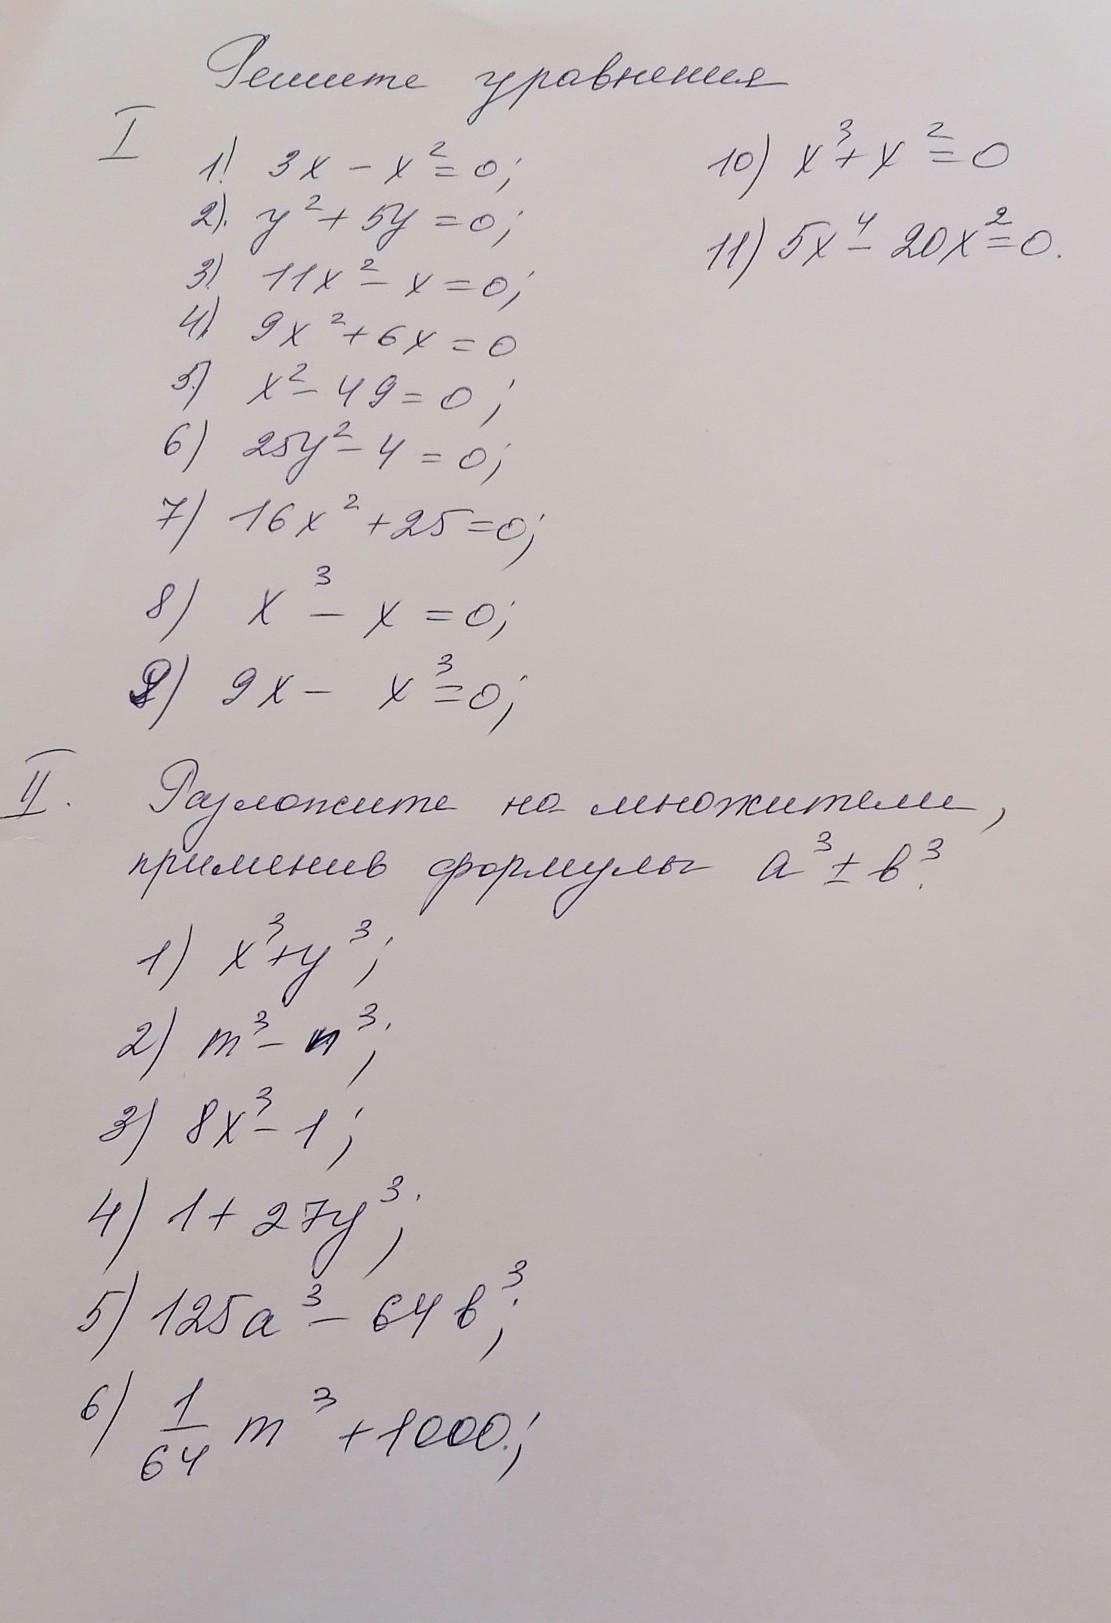 Решите уравнения
I
1) 3x - x² = 0;
2). y² + 5y = 0;
3) 11x² - x = 0;
4) 9x² + 6x = 0
5) x² - 49 = 0;
6) 25y² - 4 = 0;
7) 16x² + 25 = 0;
8) x³ - x = 0;
9) 9x - x³ = 0;
10) x³ + x² = 0
11) 5x⁴ - 20x² = 0.
II. Разложите на множители,
применив формулы a³ ± b³.
1) x³ + y³;
2) m³ - n³;
3) 8x³ - 1;
4) 1 + 27y³;
5) 125a³ - 64b³;
6) 1/64 m³ + 1000.;